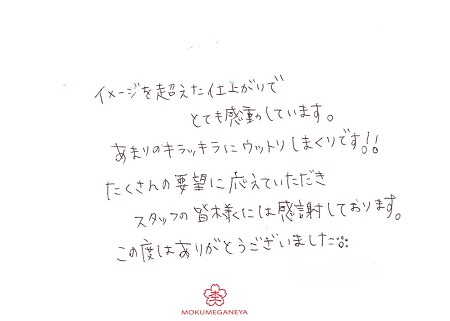 イメージを超えた仕上がりで
とても感動しています。
あまりのキラッキラにウットリしまくりです!!
たくさんの要望に応えていただき
スタッフの皆様には感謝しております。
この度はありがとうございました
MOKUMEGANEYA